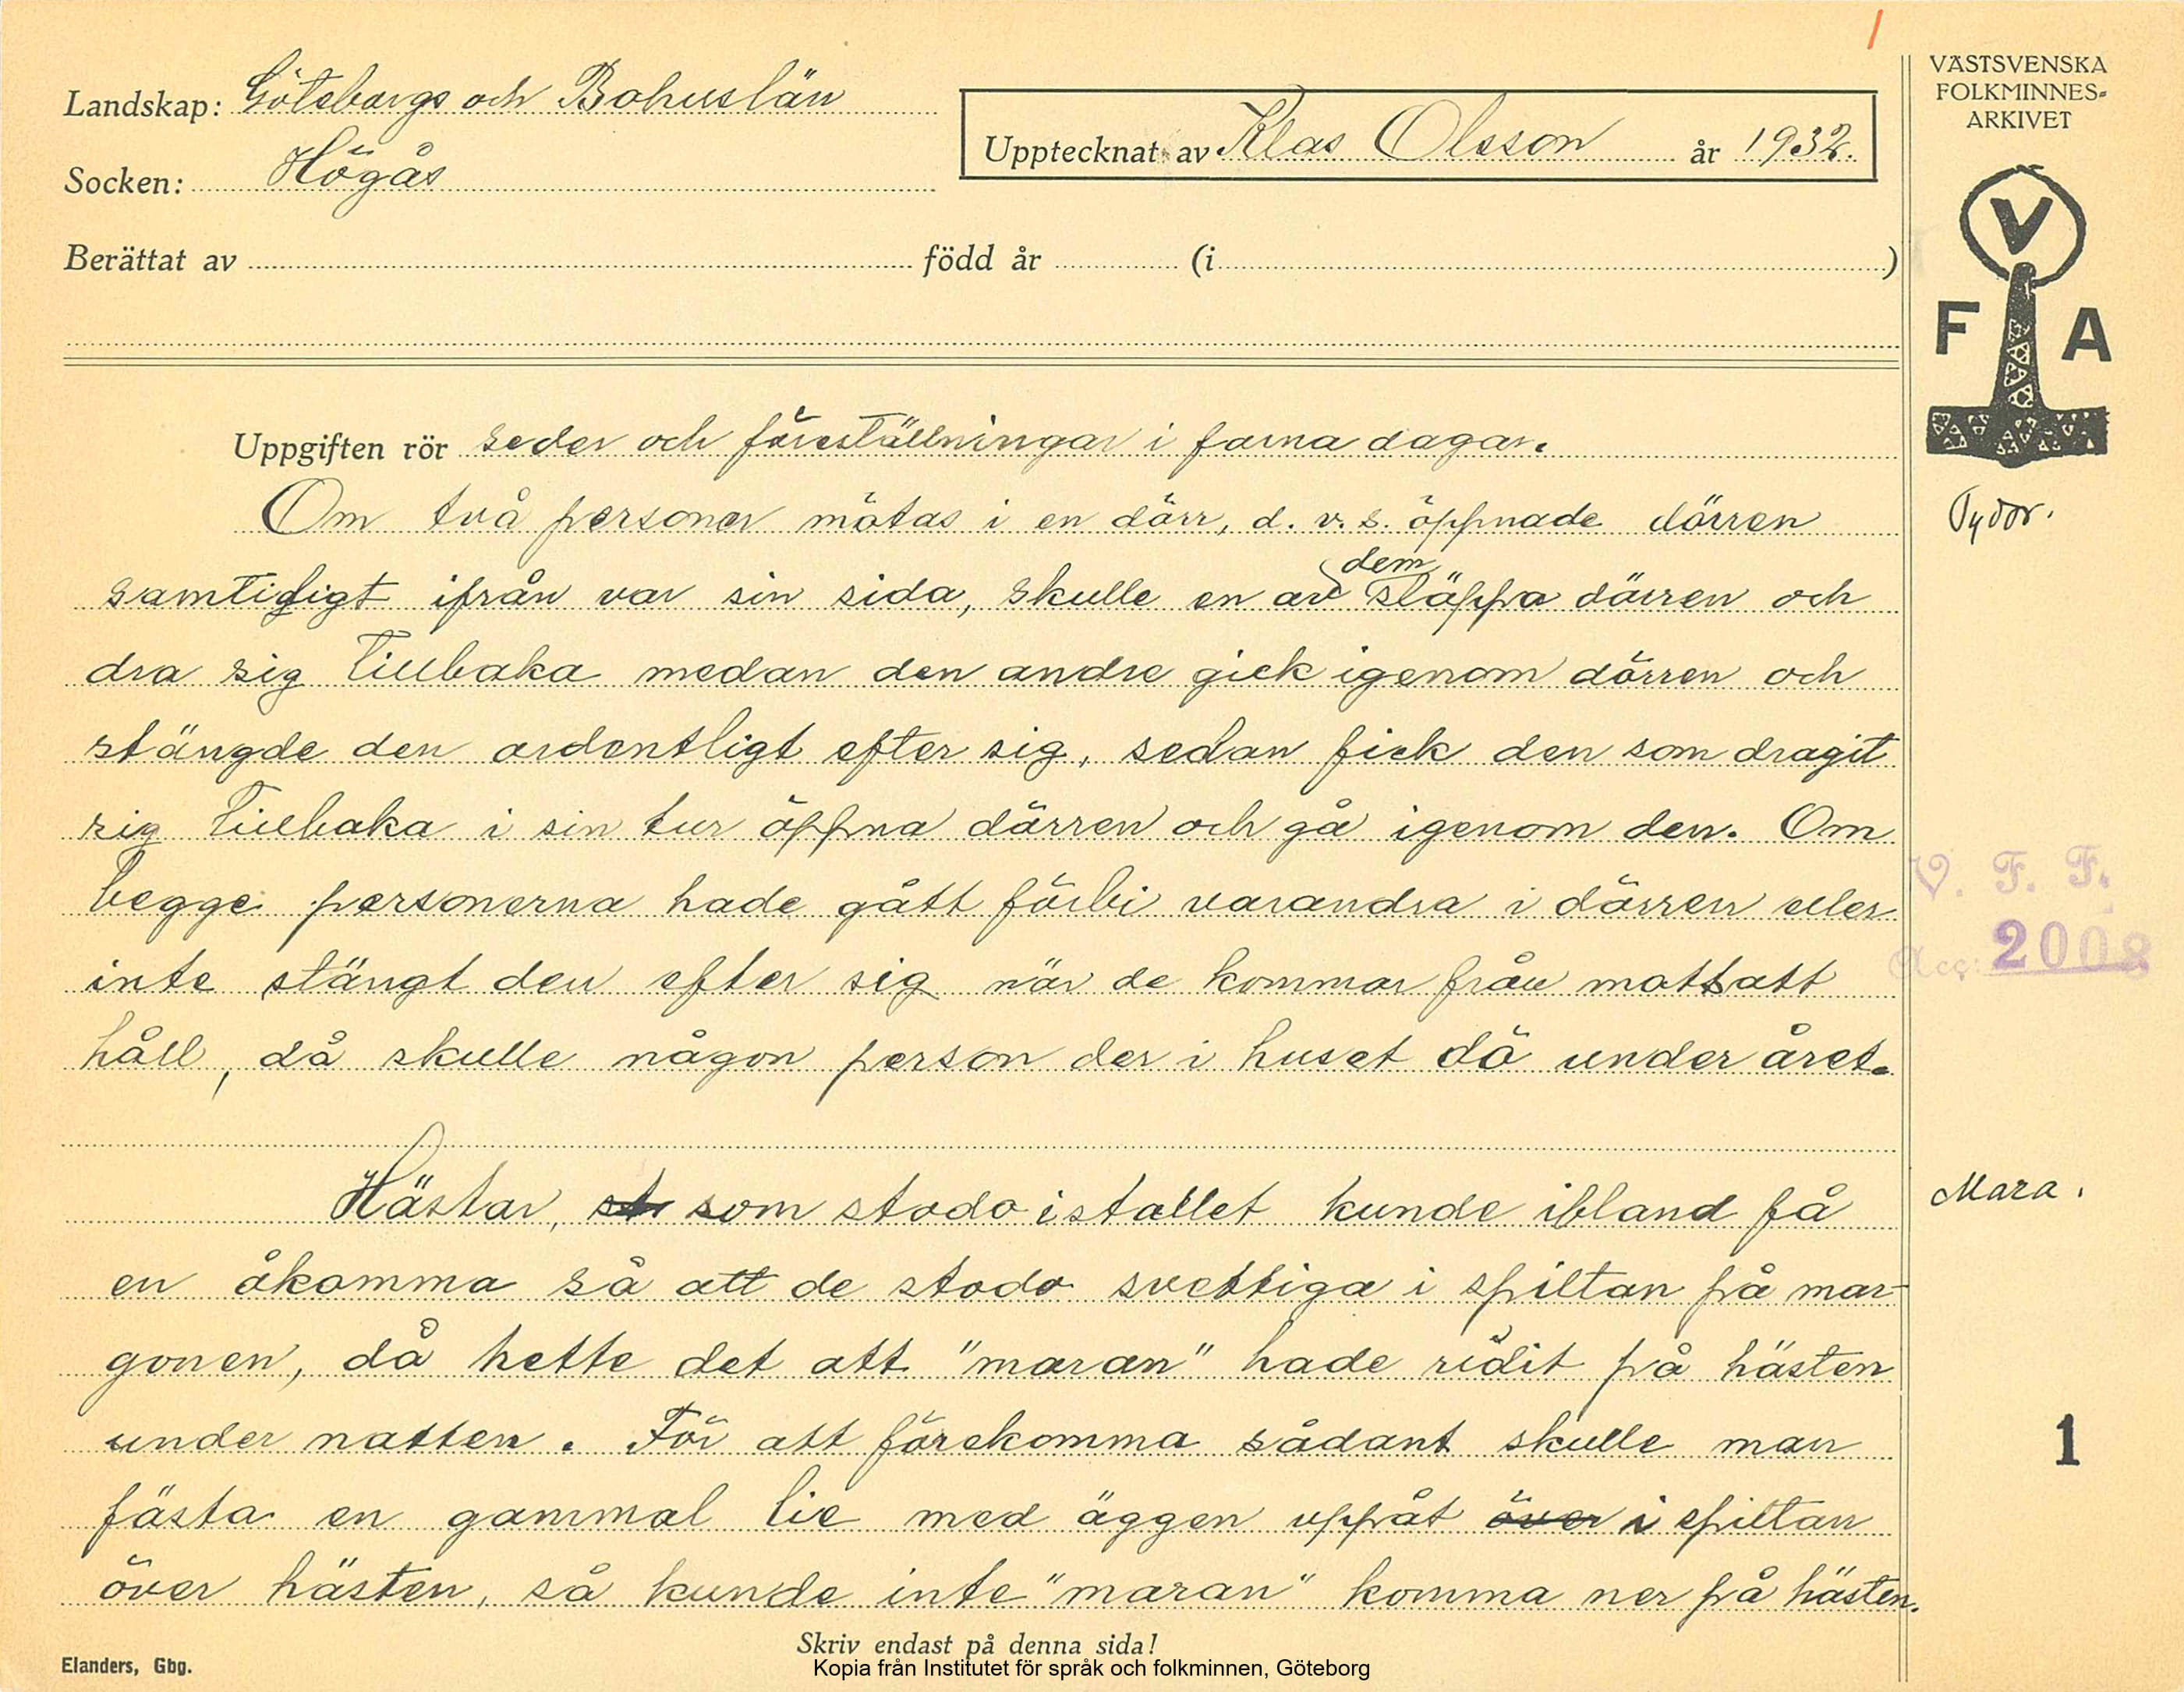 /
Landskap: Götebargs och Bohuslän
Socken: Högås
Upptecknat av Klas Olsson år 1932.
Berättat av född år (i )
VÄSTSVENSKA
FOLKMINNES-
ARKIVET
V
F A
Uppgiften rör seder och föreställningar i farna dagar.
Om två personer mötas i en dörr, d. v. s. öppnade dörren
samtidigt ifrån var sin sida, skulle en av dem släppa dörren och
dra sig tillbaka medan den andre gick igenom dörren och
stängde den ordentligt efter sig, sedan fick den som dragit
sig tillbaka i sin tur öppna dörren och gå igenom den. Om
begge personerna hade gått förbi varandra i dörren eller
inte stängt den efter sig när de kommar från mottsatt
håll, då skulle någon person der i huset dö under året.
Tydor.
V. F. F.
Acc: 2008
Hästar, som stodo i stallet kunde ibland få
en åkomma så att de stodo svettiga i spiltan på mor-
gonen, då hette det att "maran" hade ridit på hästen
under natten. För att förekomma sådant skulle man
fästa en gammal lie med äggen uppåt över i spiltan
över hästen, så kunde inte "maran" komma ner på hästen.
Mara.
1
Skriv endast på denna sida!
Elanders, Gbg.
Kopia från Institutet för språk och folkminnen, Göteborg